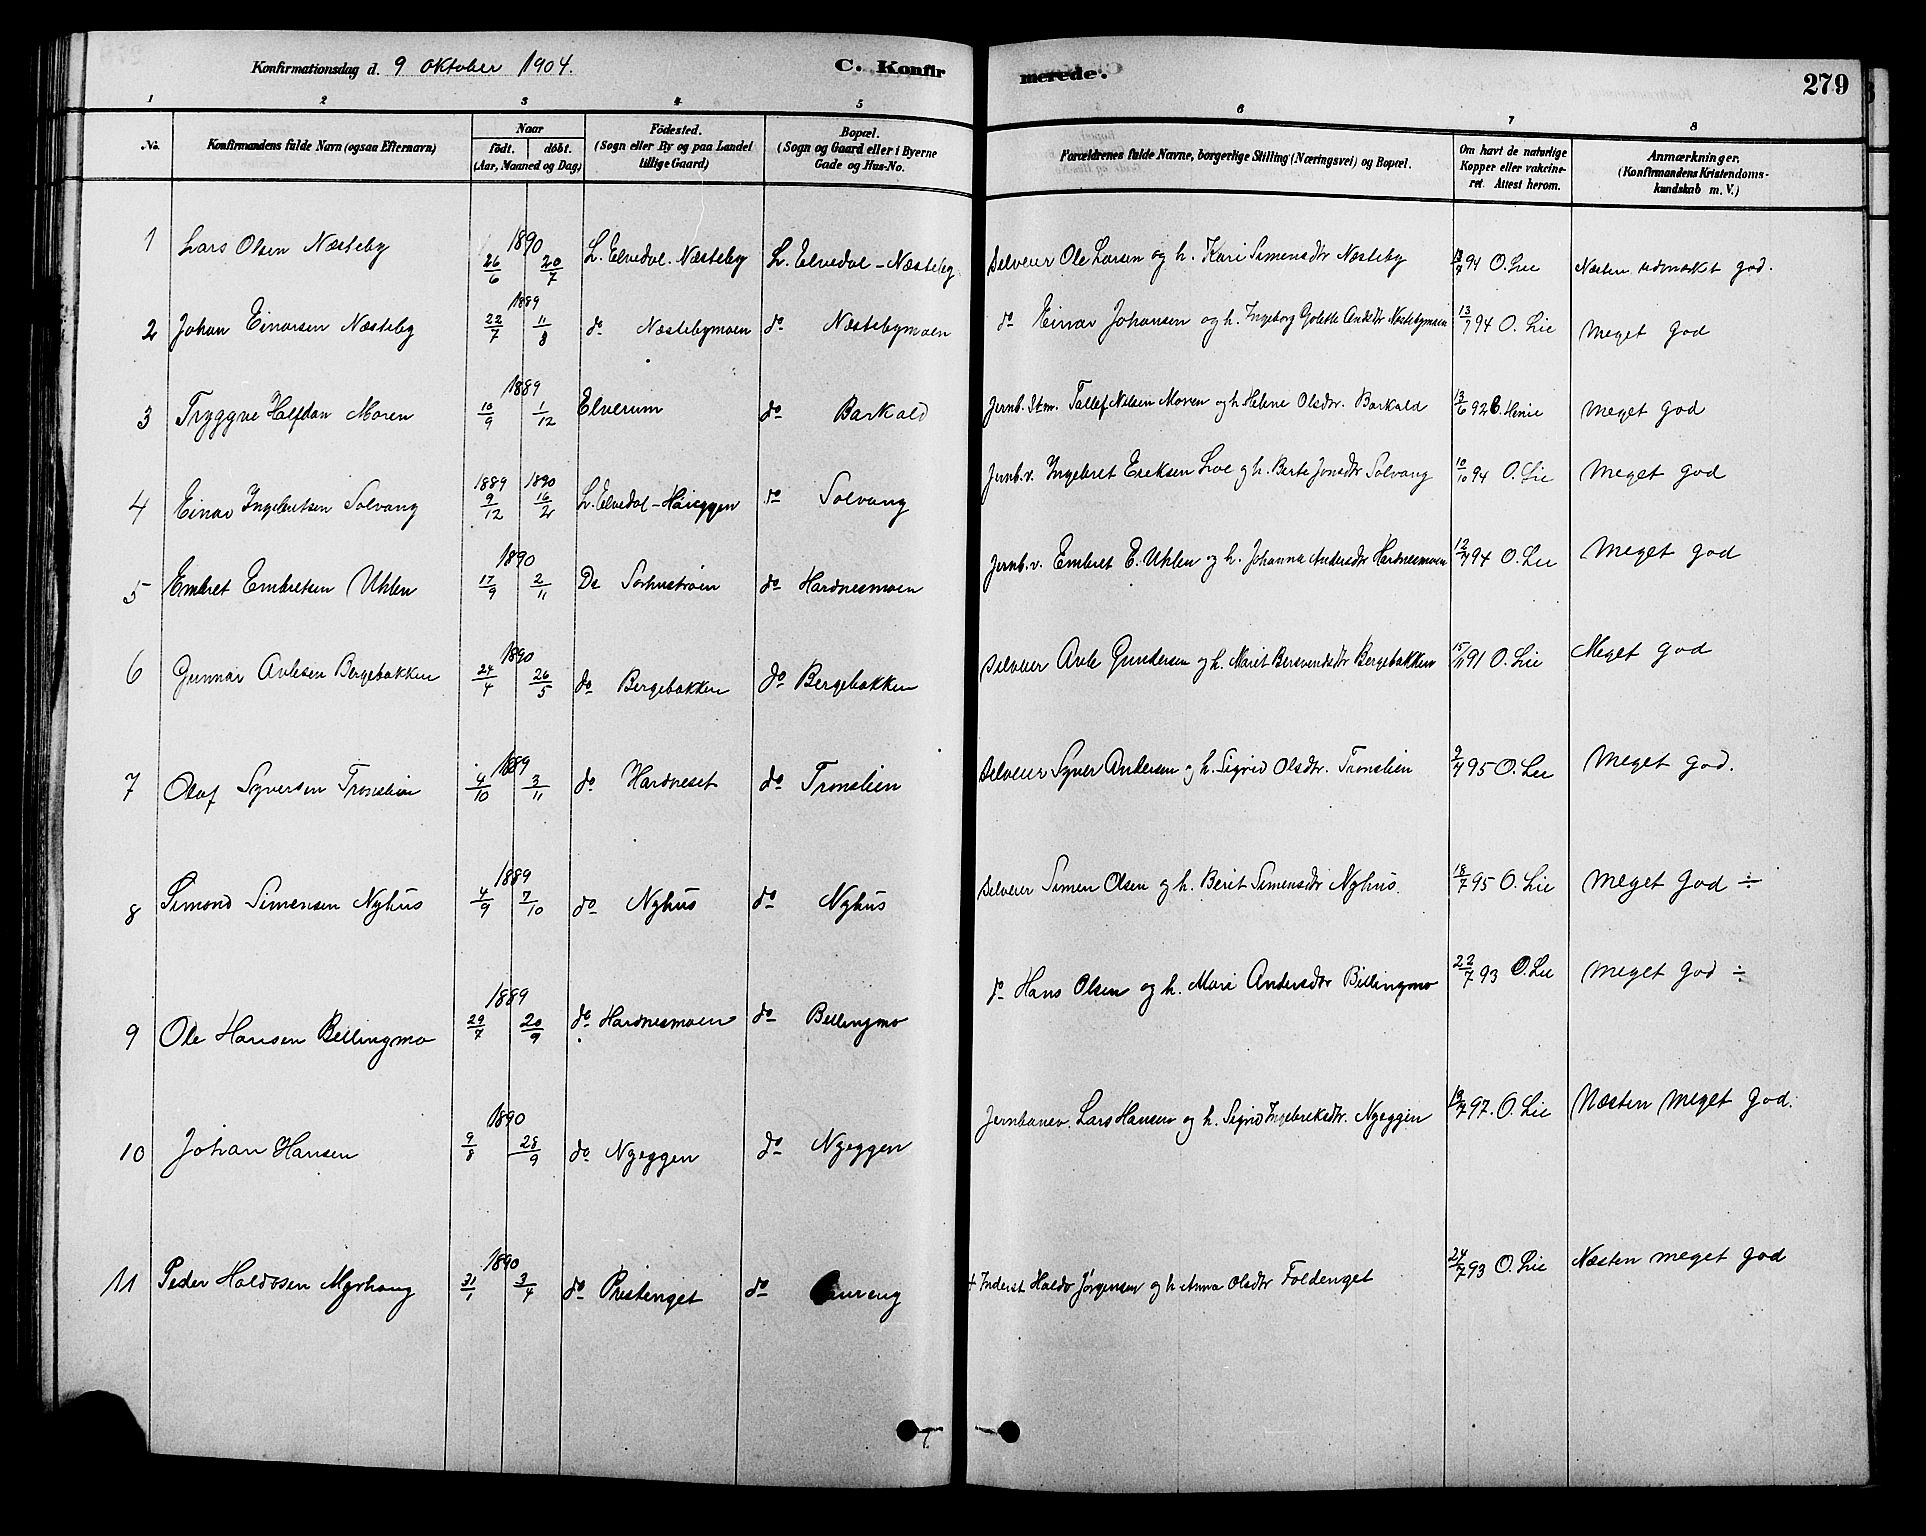 Konfirmationsdag d. 9 Oktober 1904.
C. Konfirmerede.
279
1 2 3 4 5 6 7 8
No.
Konfirmandens fulde Navn (ogsaa Efternavn)
Naar
födt. döbt.
(Aar, Maaned og Dag)
Födested.
(Sogn eller By og paa Landet
tillige Gaard)
Bopæl.
(Sogn og Gaard eller i Byerne
Gade og Hus-No.
Forældrenes fulde Navne, borgerlige Stilling (Næringsvei) og Bopæl.
Om havt de naturlige
Kopper eller vakcine-
ret. Attest herom.
Anmærkninger.
(Konfirmandens Kristendoms-
kundskab m. V.)
1 Lars Olsen Næsteby 1890 26/6 20/7 L. Elvedal. Næsteby L. Elvedal - Næsteby Selveier Ole Larsen og h. Kari Simensdtr Næsteby 13/7 94 O. Lie Næsten udmærket god.
2 Johan Einarsen Næsteby 1889 22/7 11/8 do Næstebymoen do Næstebymoen do Einar Johansen og h. Ingeborg Golette Andsdtr Næstebymoen 13/7 94 O. Lie Meget god
3 Tryggve Halfdan Moren 1889 10/9 1/12 Elverum do Barkald Jernb. Stm. Tallef Nilsen Moren og h Helene Olsdtr. Barkald 13/6 92 Henie Meget god
4 Einar Ingebretsen Solvang 1889 9/12 1890 16/2 L. Elvedal - Høieggen do Solvang Jernb. v. Ingebret Ereksen Loe og h. Berte Jonsdtr Solvang 10/10 94 O. Lie Meget god
5 Embret Embretsen Uhlen 1890 17/9 2/11 Do Sorhustrøen do Hardnesmoen Jernb. v. Embret E. Uhlen og h. Johanna Andersdtr Hardnesmoen 12/7 94 O. Lie Meget god
6 Gunnar Avlesen Bergebakken 1890 24/4 26/5 do Bergebakken do Bergebakken Selveier Avle Gundersen og h. Marit Bersvendsdtr Bergebakken 15/11 91 O. Lie Meget god
7 Olaf Syversen Tronslien 1889 4/10 3/11 do Hardneset do Tronslien Selveier Syver Andersen og h. Sigrid Olsdtr. Tronslien 2/7 95 O. Lie Meget god.
8 Simond Simensen Nyhus 1889 4/9 7/10 do Nyhus do Nyhus Selveier Simen Olsen og h. Berit Simensdtr Nyhus. 18/7 95 O. Lie Meget god ÷
9 Ole Hansen Bellingmo 1889 29/7 20/9 do Hardnesmoen do Bellingmo do Hans Olsen og h. Mari Andersdtr Bellingmo 22/7 93 O. Lie Meget god ÷
10 Johan Hansen 1890 9/8 28/9 do Nyeggen do Nyeggen Jernbanev. Lars Hansen og h. Sigrid Ingebrektsdtr. Nyeggen 19/7 97. O. Lie Næsten meget god.
11 Peder Haldosen Myrhaug 1890 31/1 3/4 do Prestenget do + Inderst Haldo Jørgensen og h Anna Olsdtr Foldenget 24/7 93 O. Lie Næsten meget god